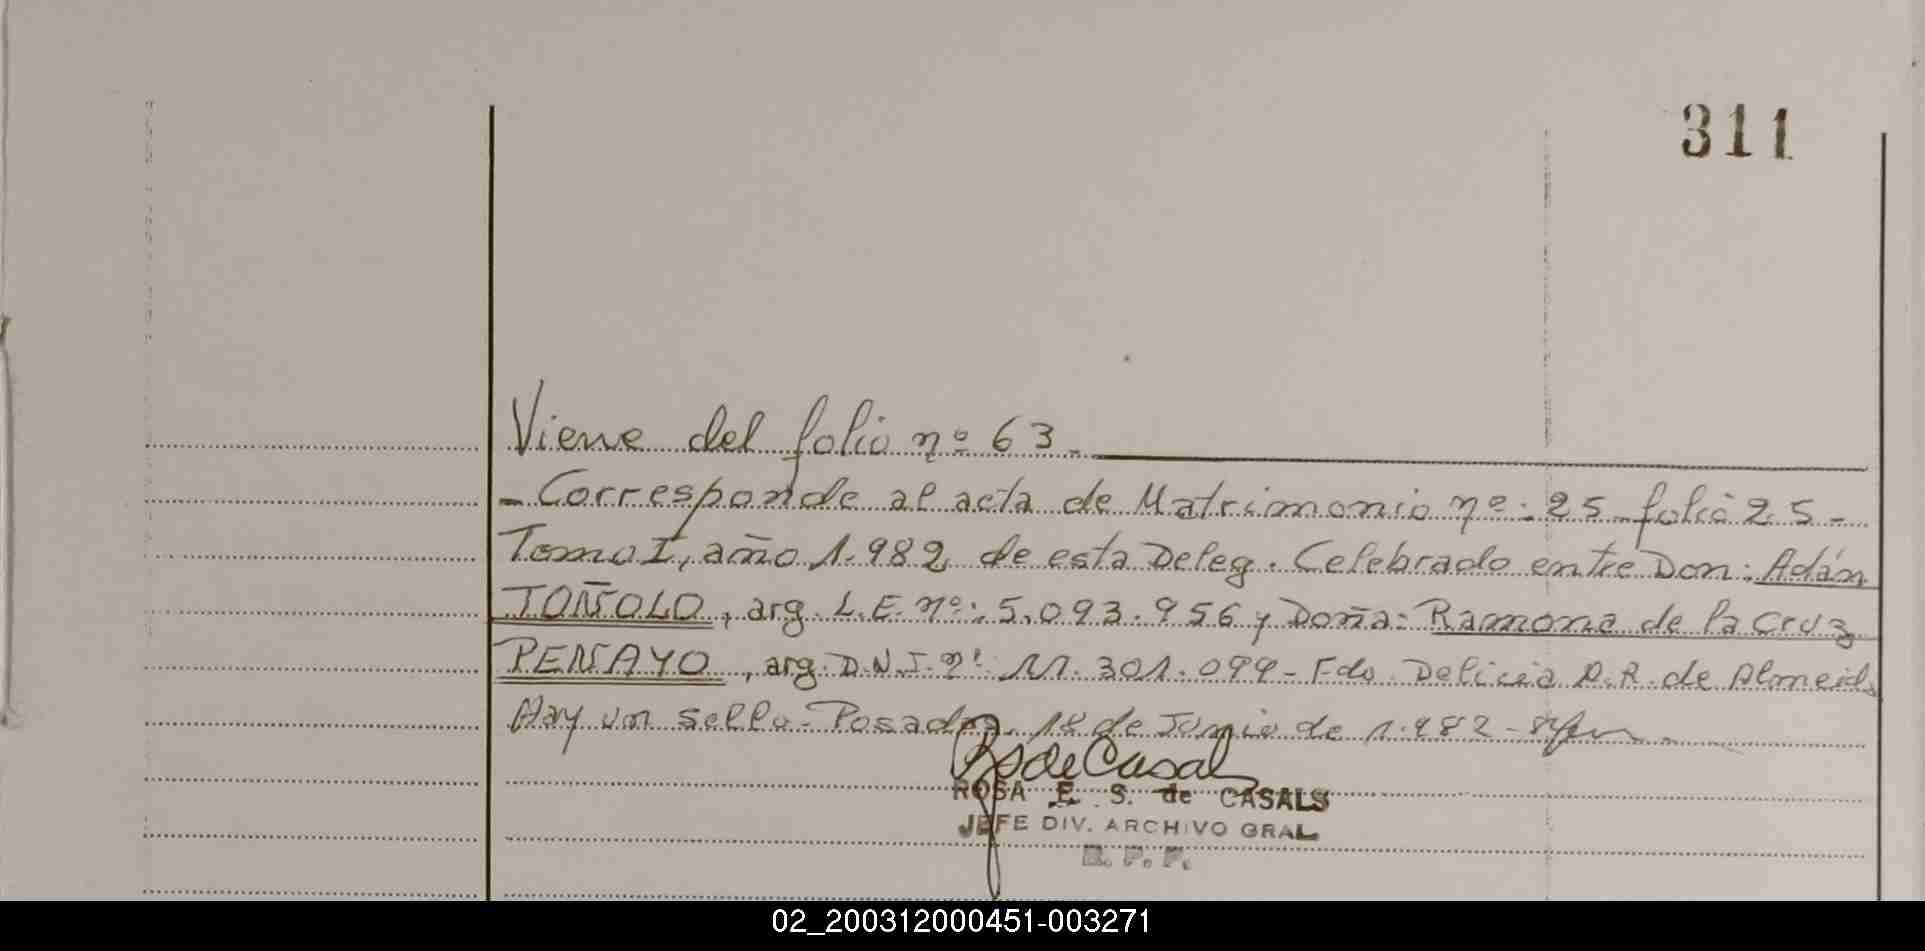 311
Viene del folio nº 63 -
- Corresponde al acta de Matrimonio nº: 25 folio 25 -
Tomo I, año 1.982 de esta Deleg. Celebrado entre Don: Adán
TOÑOLO, arg. L.E. nº: 5.093.956 y Doña: Ramona de la Cruz
PENAYO, arg. D.N.I. nº 11.301.099 - Fdo. Delicia R. de Almeida
Hay un sello - Posadas, 18 de Junio de 1.982 -
RS de Casal
ROSA E. S. de CASALS
JEFE DIV. ARCHIVO GRAL
R. P. P.
02_200312000451-003271